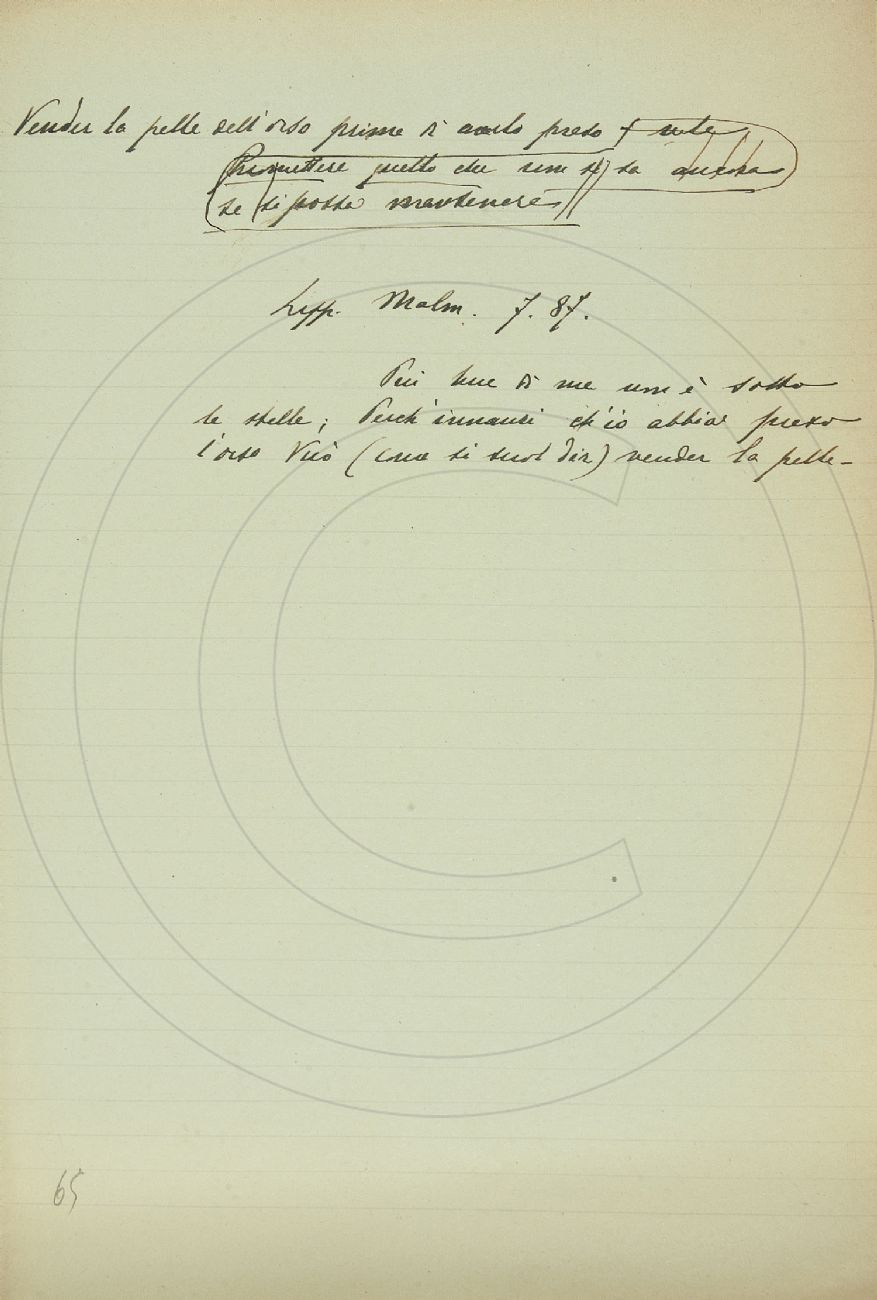 Vender la pelle dell'orso prima di averlo preso
Promettere quello che non si sa ancora
se si possa mantenere
Lipp. Malm. 7. 87.
Più bue di me non è sotto
le stelle; Perch'innanzi ch'io abbia preso
l'orso Vuò (come si suol dir) vender la pelle-
65